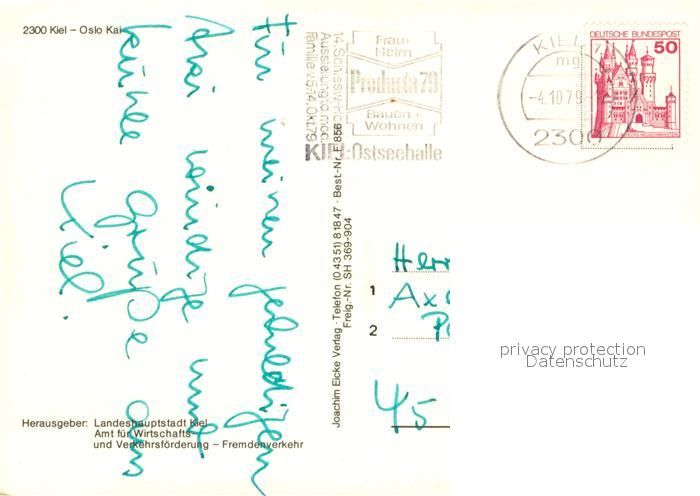 2300 Kiel – Oslo Kai
Für meinen geduldigen
drei windige und
kühle Grüße aus
Kiel.
Herausgeber: Landeshauptstadt Kiel
Amt für Wirtschafts-
und Verkehrsförderung – Fremdenverkehr
Joachim Eicke Verlag · Telefon (0 43 51) 8 18 47 · Best.-Nr. E 856
Freig.-Nr. SH 369-904
14. Schleswig-Hol
Ausstellung f. mod.
Familie v. 5.-14. Okt. 79
Frau +
Heim
Producta 79
Bauen +
Wohnen
KIEL-Ostseehalle
KIEL
mg
-4.10.79
2300
DEUTSCHE BUNDESPOST
50
Herr
1 Ax
2
45
privacy protection
Datenschutz